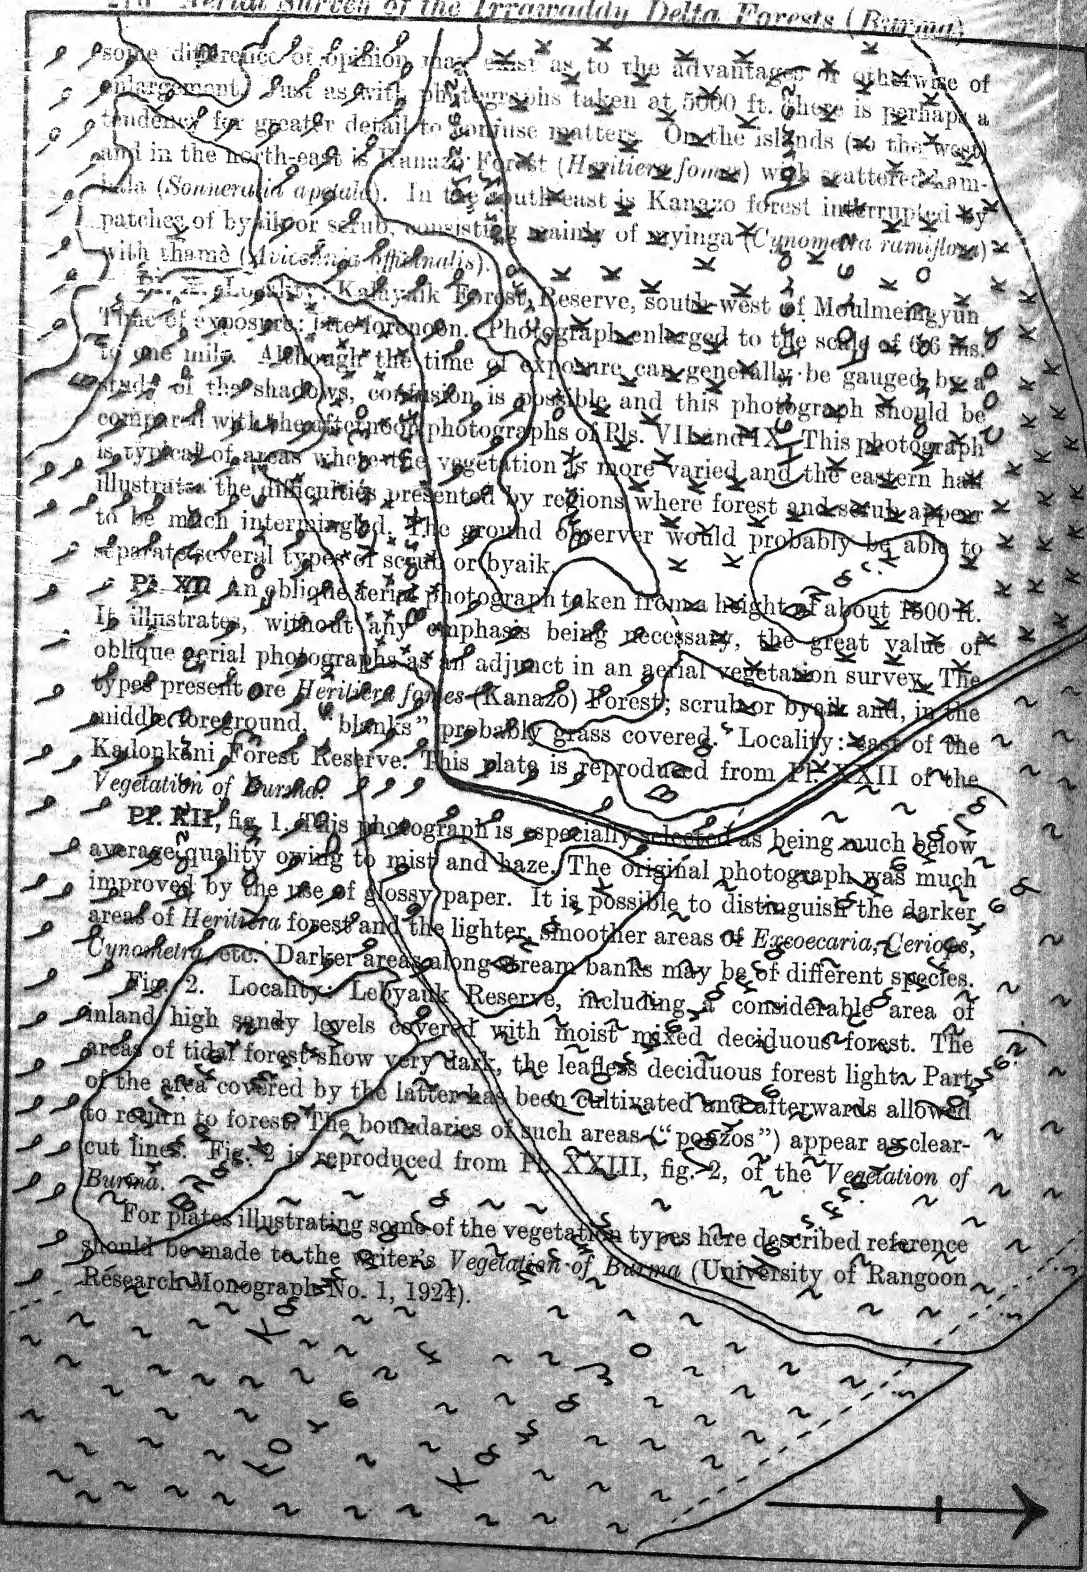 Aerial Survey of the Irrawaddy Delta Forests (Burma)
some difference of opinion may exist as to the advantages or otherwise of
enlargement. Just as with photographs taken at 5000 ft. there is perhaps a
tendency for greater detail to confuse matters. On the islands (to the west)
and in the north-east is Kanazo Forest (Heritiera fomes) with scattered
(Sonneratia apetala). In the south-east is Kanazo forest interrupted by
patches of byaik or scrub, consisting mainly of myinga (Cynometra ramiflora)
with thamè (Avicennia officinalis).
Locality: Kalayaik Forest Reserve, south-west of Moulmeingyun
Time of exposure: late forenoon. Photograph enlarged to the scale of 6·6 ins.
to one mile. Although the time of exposure can generally be gauged by a
study of the shadows, confusion is possible and this photograph should be
compared with the afternoon photographs of Pls. VII and IX. This photograph
is typical of areas where the vegetation is more varied and the eastern half
illustrates the difficulties presented by regions where forest and scrub appear
to be much intermingled. The ground observer would probably be able to
separate several types of scrub or byaik.
Pl. XI. An oblique aerial photograph taken from a height of about 1500 ft.
It illustrates, without any emphasis being necessary, the great value of
oblique aerial photographs as an adjunct in an aerial vegetation survey. The
types present are Heritiera fomes (Kanazo) Forest; scrub or byaik and, in the
middle foreground, "blanks" probably grass covered. Locality: east of the
Kadonkani Forest Reserve. This plate is reproduced from Pl. XXII of the
Vegetation of Burma.
Pl. XII, fig. 1. This photograph is especially selected as being much below
average quality owing to mist and haze. The original photograph was much
improved by the use of glossy paper. It is possible to distinguish the darker
areas of Heritiera forest and the lighter, smoother areas of Excoecaria, Ceriops,
Cynometra, etc. Darker areas along stream banks may be of different species.
Fig. 2. Locality: Lebyauk Reserve, including a considerable area of
inland high sandy levels covered with moist mixed deciduous forest. The
areas of tidal forest show very dark, the leafless deciduous forest light. Part
of the area covered by the latter has been cultivated and afterwards allowed
to return to forest. The boundaries of such areas ("ponzos") appear as clear-
cut lines. Fig. 2 is reproduced from Pl. XXIII, fig. 2, of the Vegetation of
Burma.
For plates illustrating some of the vegetation types here described reference
should be made to the writer's Vegetation of Burma (University of Rangoon
Research Monograph No. 1, 1924).